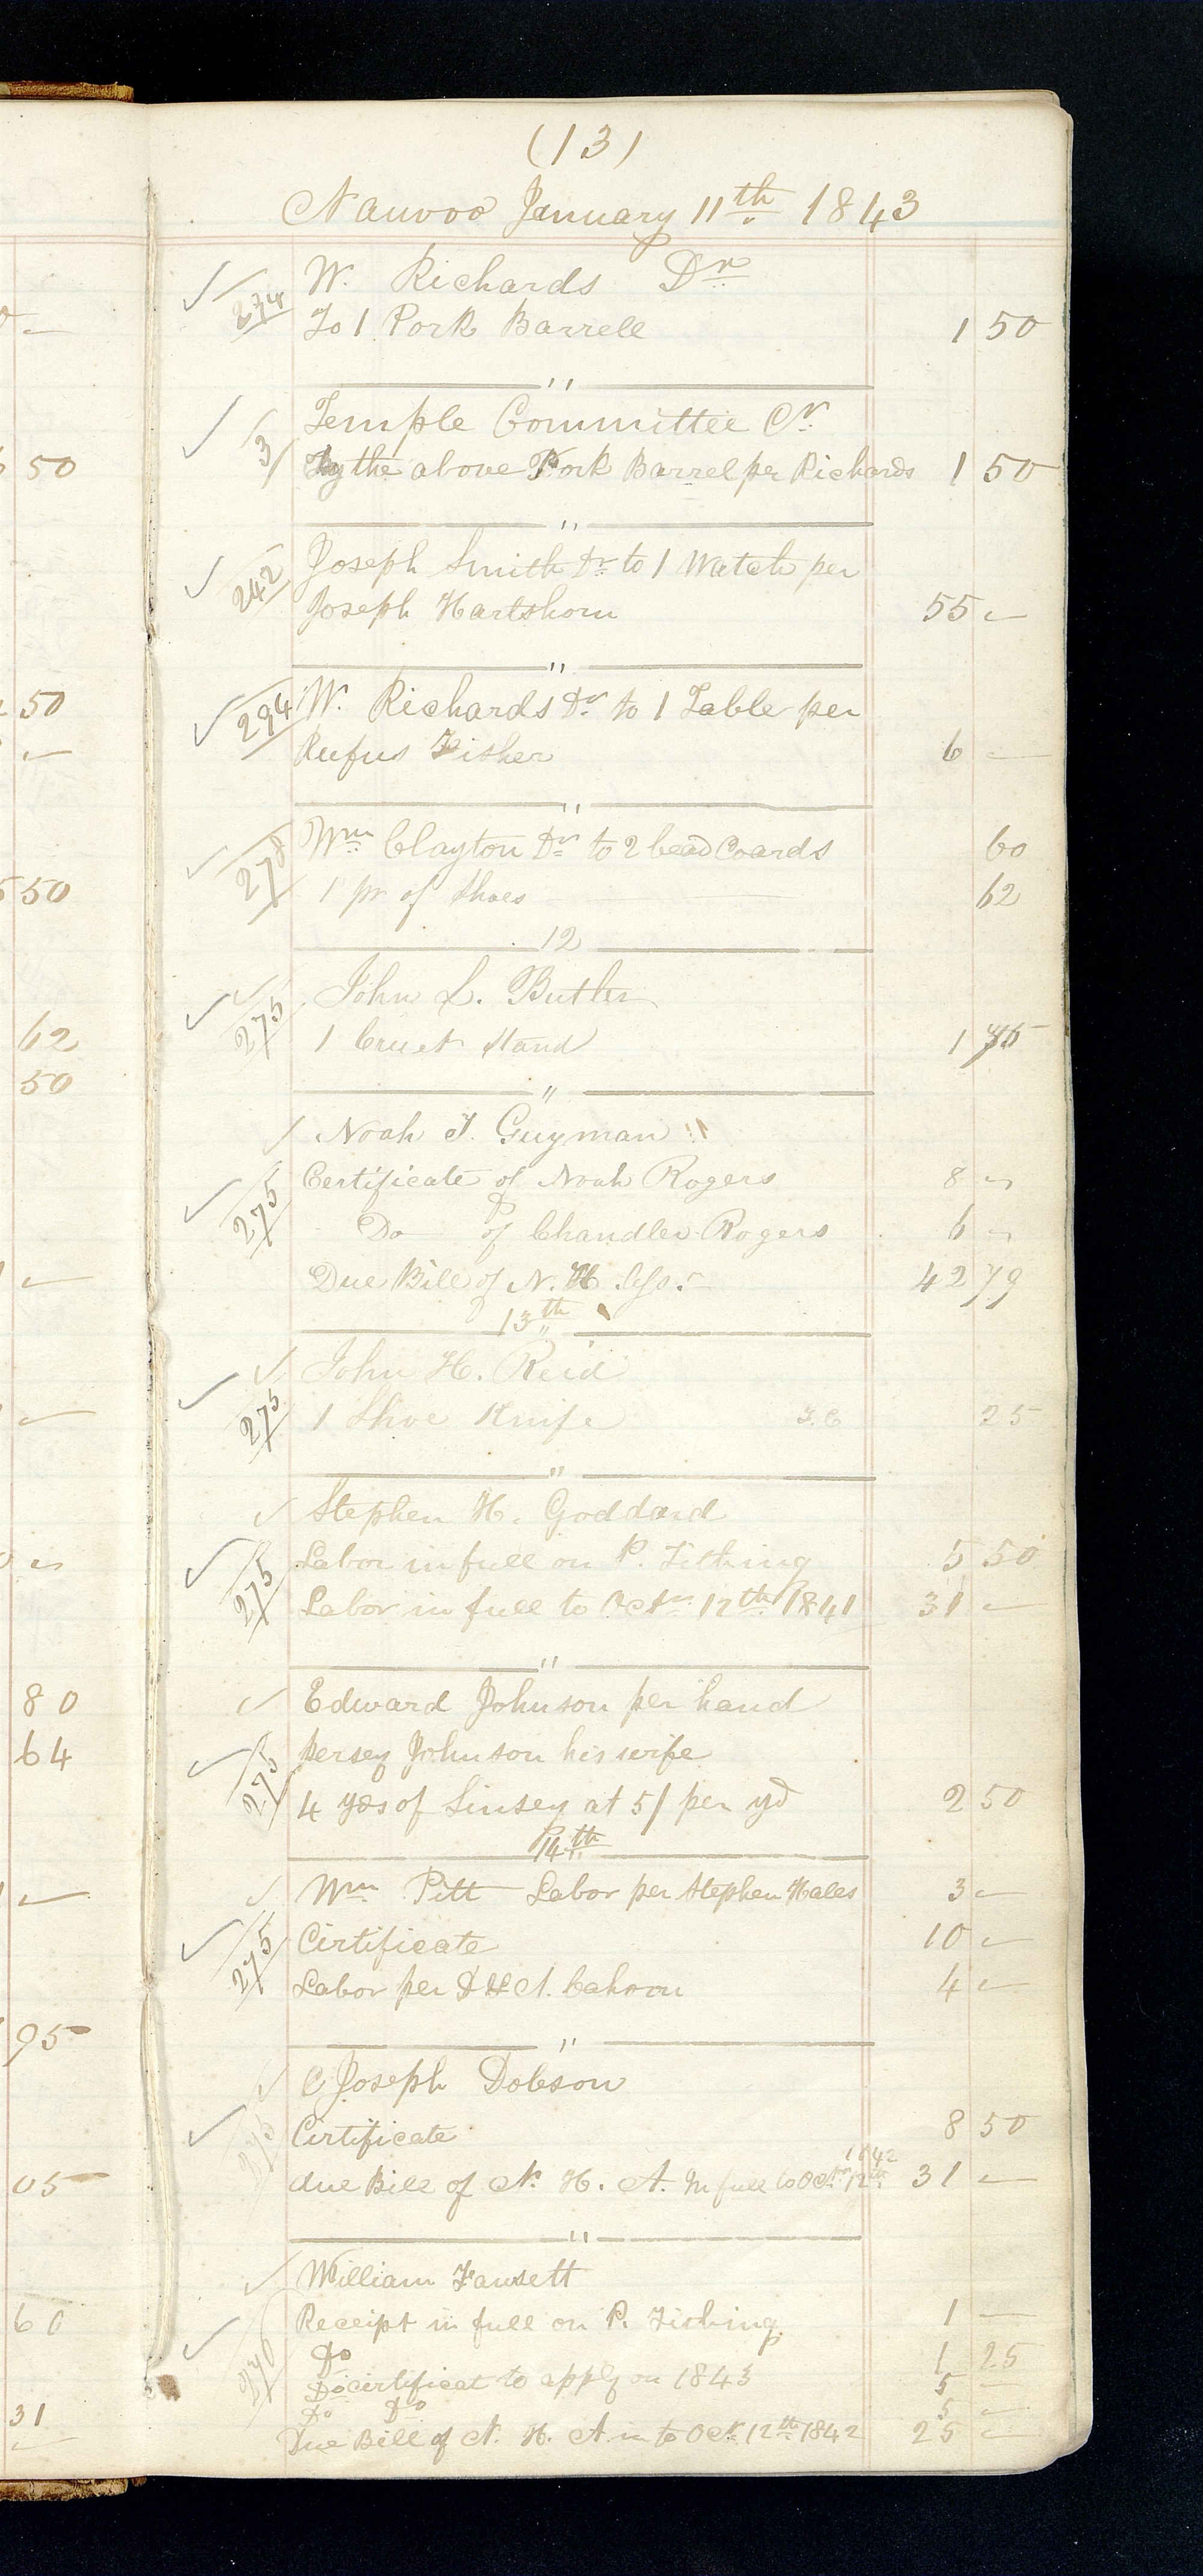 (13)
Nauvoo January 11th 1843
W. Richards Dr
274 To 1 Pork Barrell 1 50
"
Temple Committee Cr
3 By the above Pork Barrel per Richards 1 50
50
"
Joseph Smith Dr to 1 Watch per
242 Joseph Hartshorn 55 —
"
294 W. Richards Dr to 1 Table per
50
Rufus Fisher 6 —
"
Wm Clayton Dr to 2 bead Coards 60
278 1 pr of Shoes 62
50
12
John L. Butler
275 1 Cruet Stand 1
62
50
"
Noah T. Guyman "
Certificate of Noah Rogers 8 —
275 Do of Chandler Rogers 6 —
Due Bill of N. H. 42 79
13th
John H. Reid
275 1 Shoe Knife T.C 25
"
Stephen H. Goddard
Labor in full on P. Tithing 5 50
275 Labor in full to Octr 12th 1841 31 —
"
80 Edward Johnson per hand
64 persey Johnson his wife
275 4 yds of Linsey at 5/ per yd 2 50
14th
Wm Pitt Labor per Stephen Hales 3 —
Certificate 10 —
275 Labor per Cahoon 4 —
95
"
Joseph Dobson
275 Certificate 8 50
1842
due Bill of N. H. A. In full to Octr 12th 31 —
05
"
William Fawsett
60 Receipt in full on P. Tithing 1 —
Do 1 25
Do certificat to apply on 1843 5 —
Do Do 5 —
31
Due Bill of N. H. A. in to Oct 12th 1842 25 —